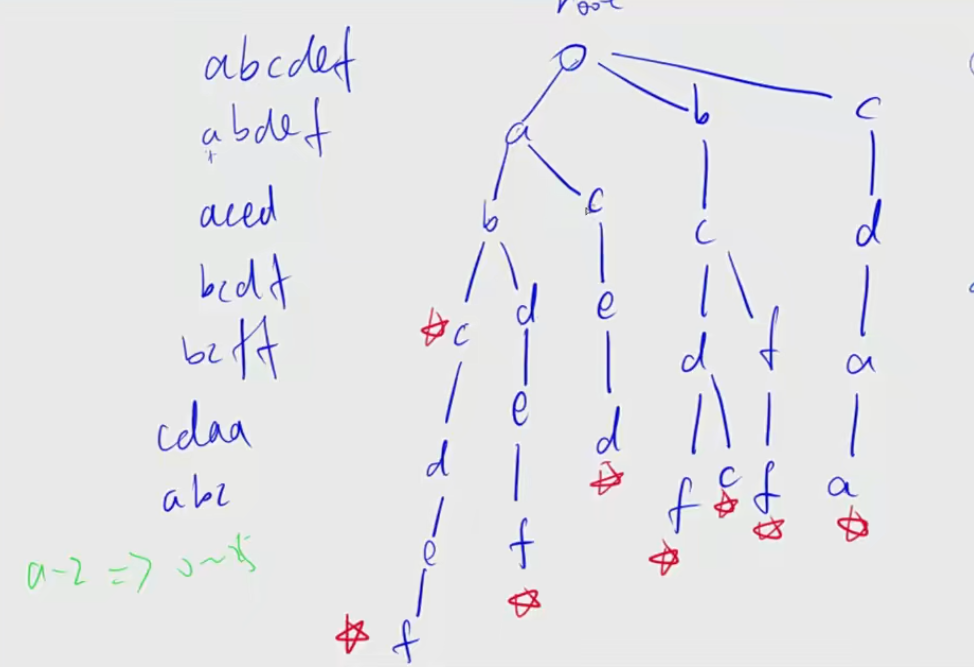 root
abcdef
abdef
aced
bcdf
bcff
cdaa
abc
a-z => 0~25
a b c
b c c d
c d e d f a
d e d f c f a
e f
f